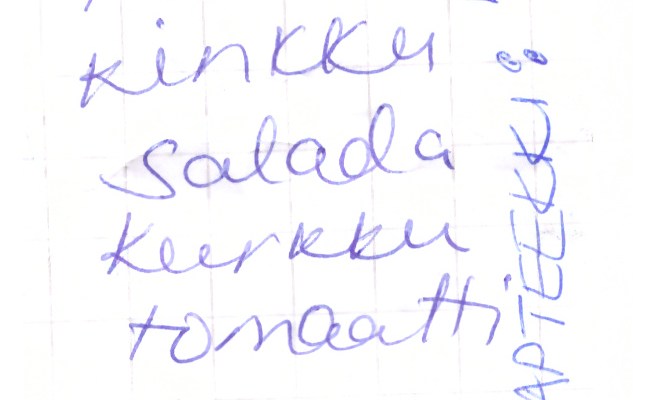 kinkku
salada
kurkku
tomaatti
APTEEKKI: